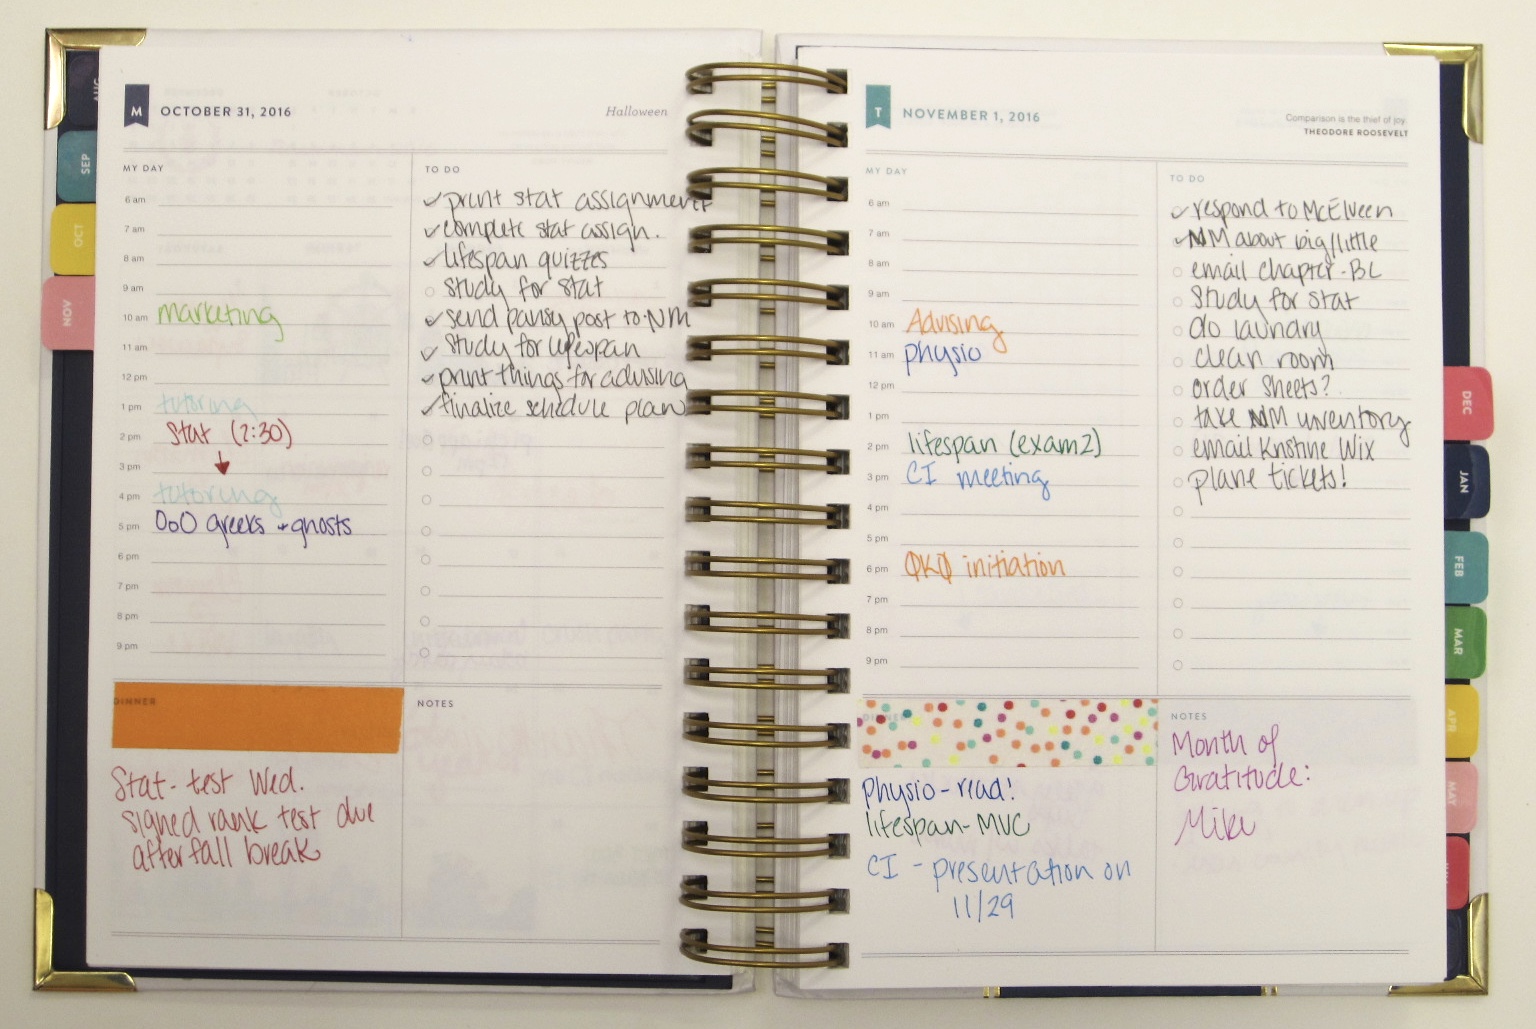 AUG
SEP
OCT
NOV
M OCTOBER 31, 2016 Halloween
MY DAY
6 am
7 am
8 am
9 am
marketing
10 am
11 am
12 pm
tutoring
1 pm
Stat (2:30)
2 pm
3 pm
tutoring
4 pm
5 pm OoO greeks + ghosts
6 pm
7 pm
8 pm
9 pm
TO DO
print stat assignment
complete stat assign.
lifespan quizzes
study for stat
send pansy post to NM
study for lifespan
print things for advising
finalize schedule plan
DINNER
Stat - test Wed.
signed rank test due
after fall break
NOTES
T NOVEMBER 1, 2016
Comparison is the thief of joy.
THEODORE ROOSEVELT
MY DAY
6 am
7 am
8 am
9 am
10 am Advising
11 am physio
12 pm
1 pm
2 pm lifespan (exam 2)
3 pm CI meeting
4 pm
5 pm
6 pm ΦΚΦ initiation
7 pm
8 pm
9 pm
TO DO
respond to McElveen
NM about big/little
email chapter - BL
Study for stat
do laundry
clean room
order sheets?
take NM inventory
email Kristine Wix
plane tickets!
DINNER
Physio - read!
lifespan - MVC
CI - presentation on
11/29
NOTES
Month of
Gratitude:
Mike
DEC
JAN
FEB
MAR
APR
MAY